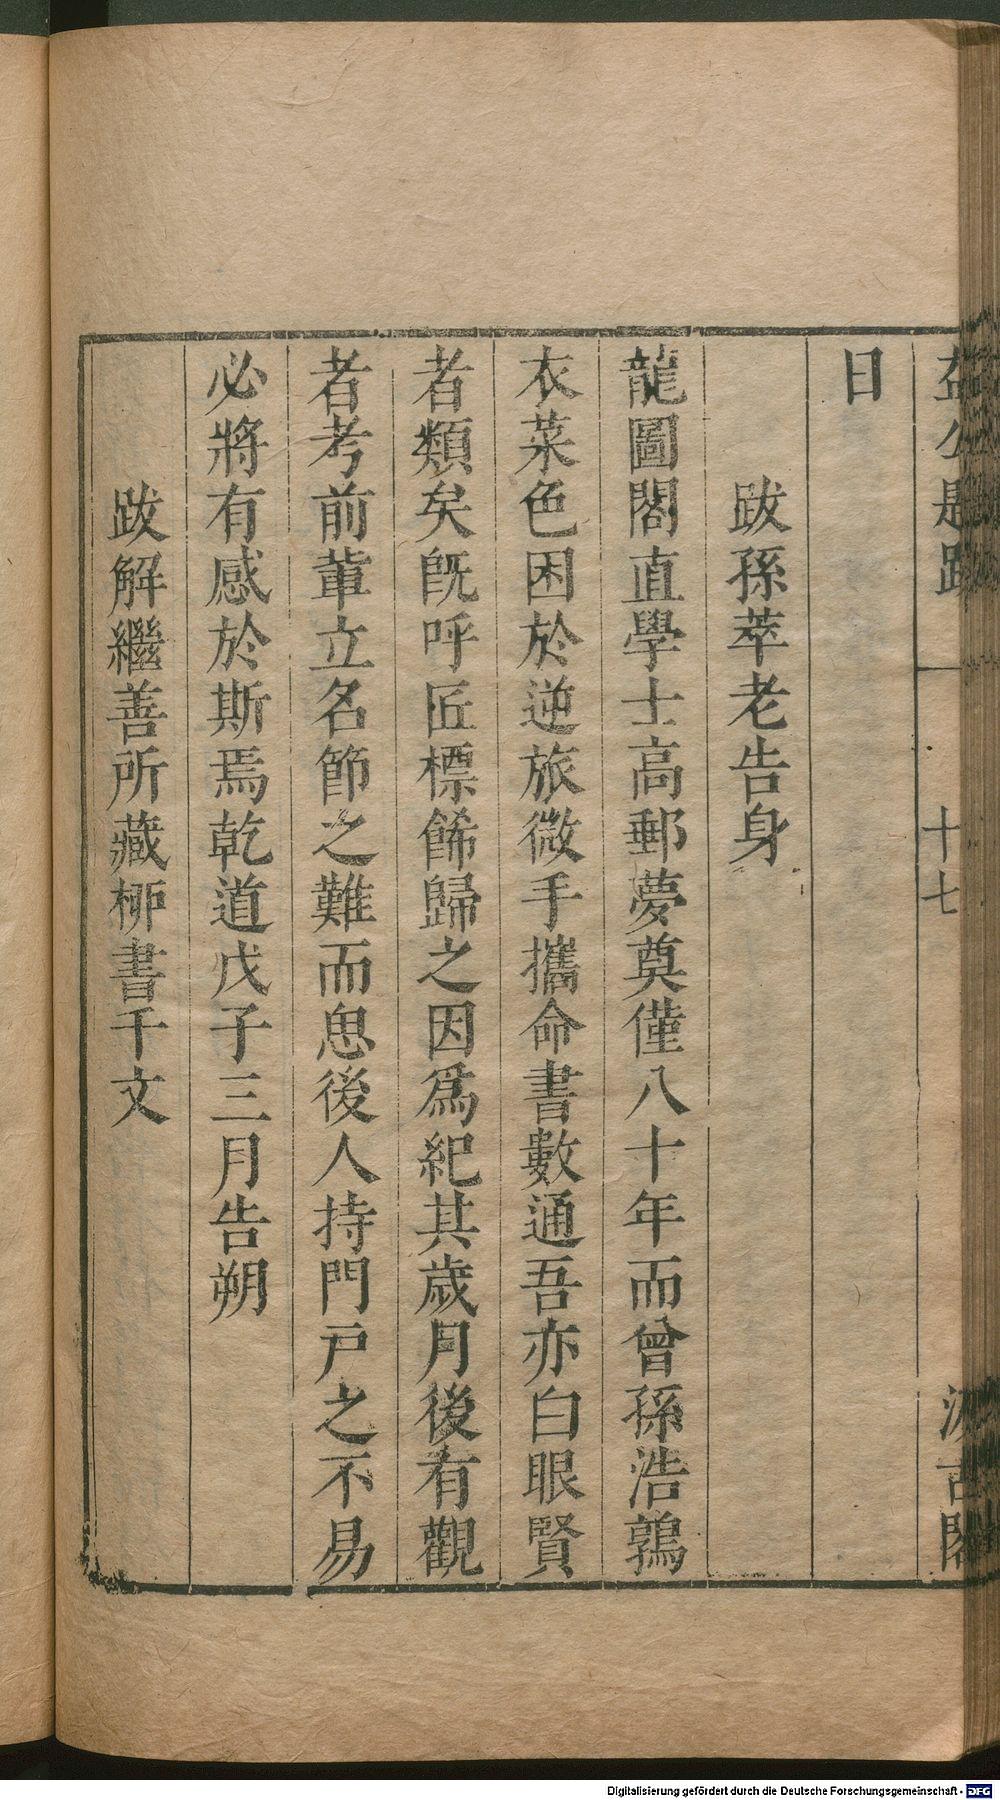 益公題跋
十七
汲古閣
日
跋孫莘老告身
龍圖閣直學士高郵夢奠僅八十年而曾孫浩鶉
衣菜色困於逆旅微手攜命書數通吾亦白眼賢
者類矣旣呼匠標餙歸之因爲紀其歲月後有觀
者考前軰立名節之難而思後人持門戶之不易
必將有感於斯焉乾道戊子三月告朔
跋解繼善所藏栁書千文
Digitalisierung gefördert durch die Deutsche Forschungsgemeinschaft - DFG